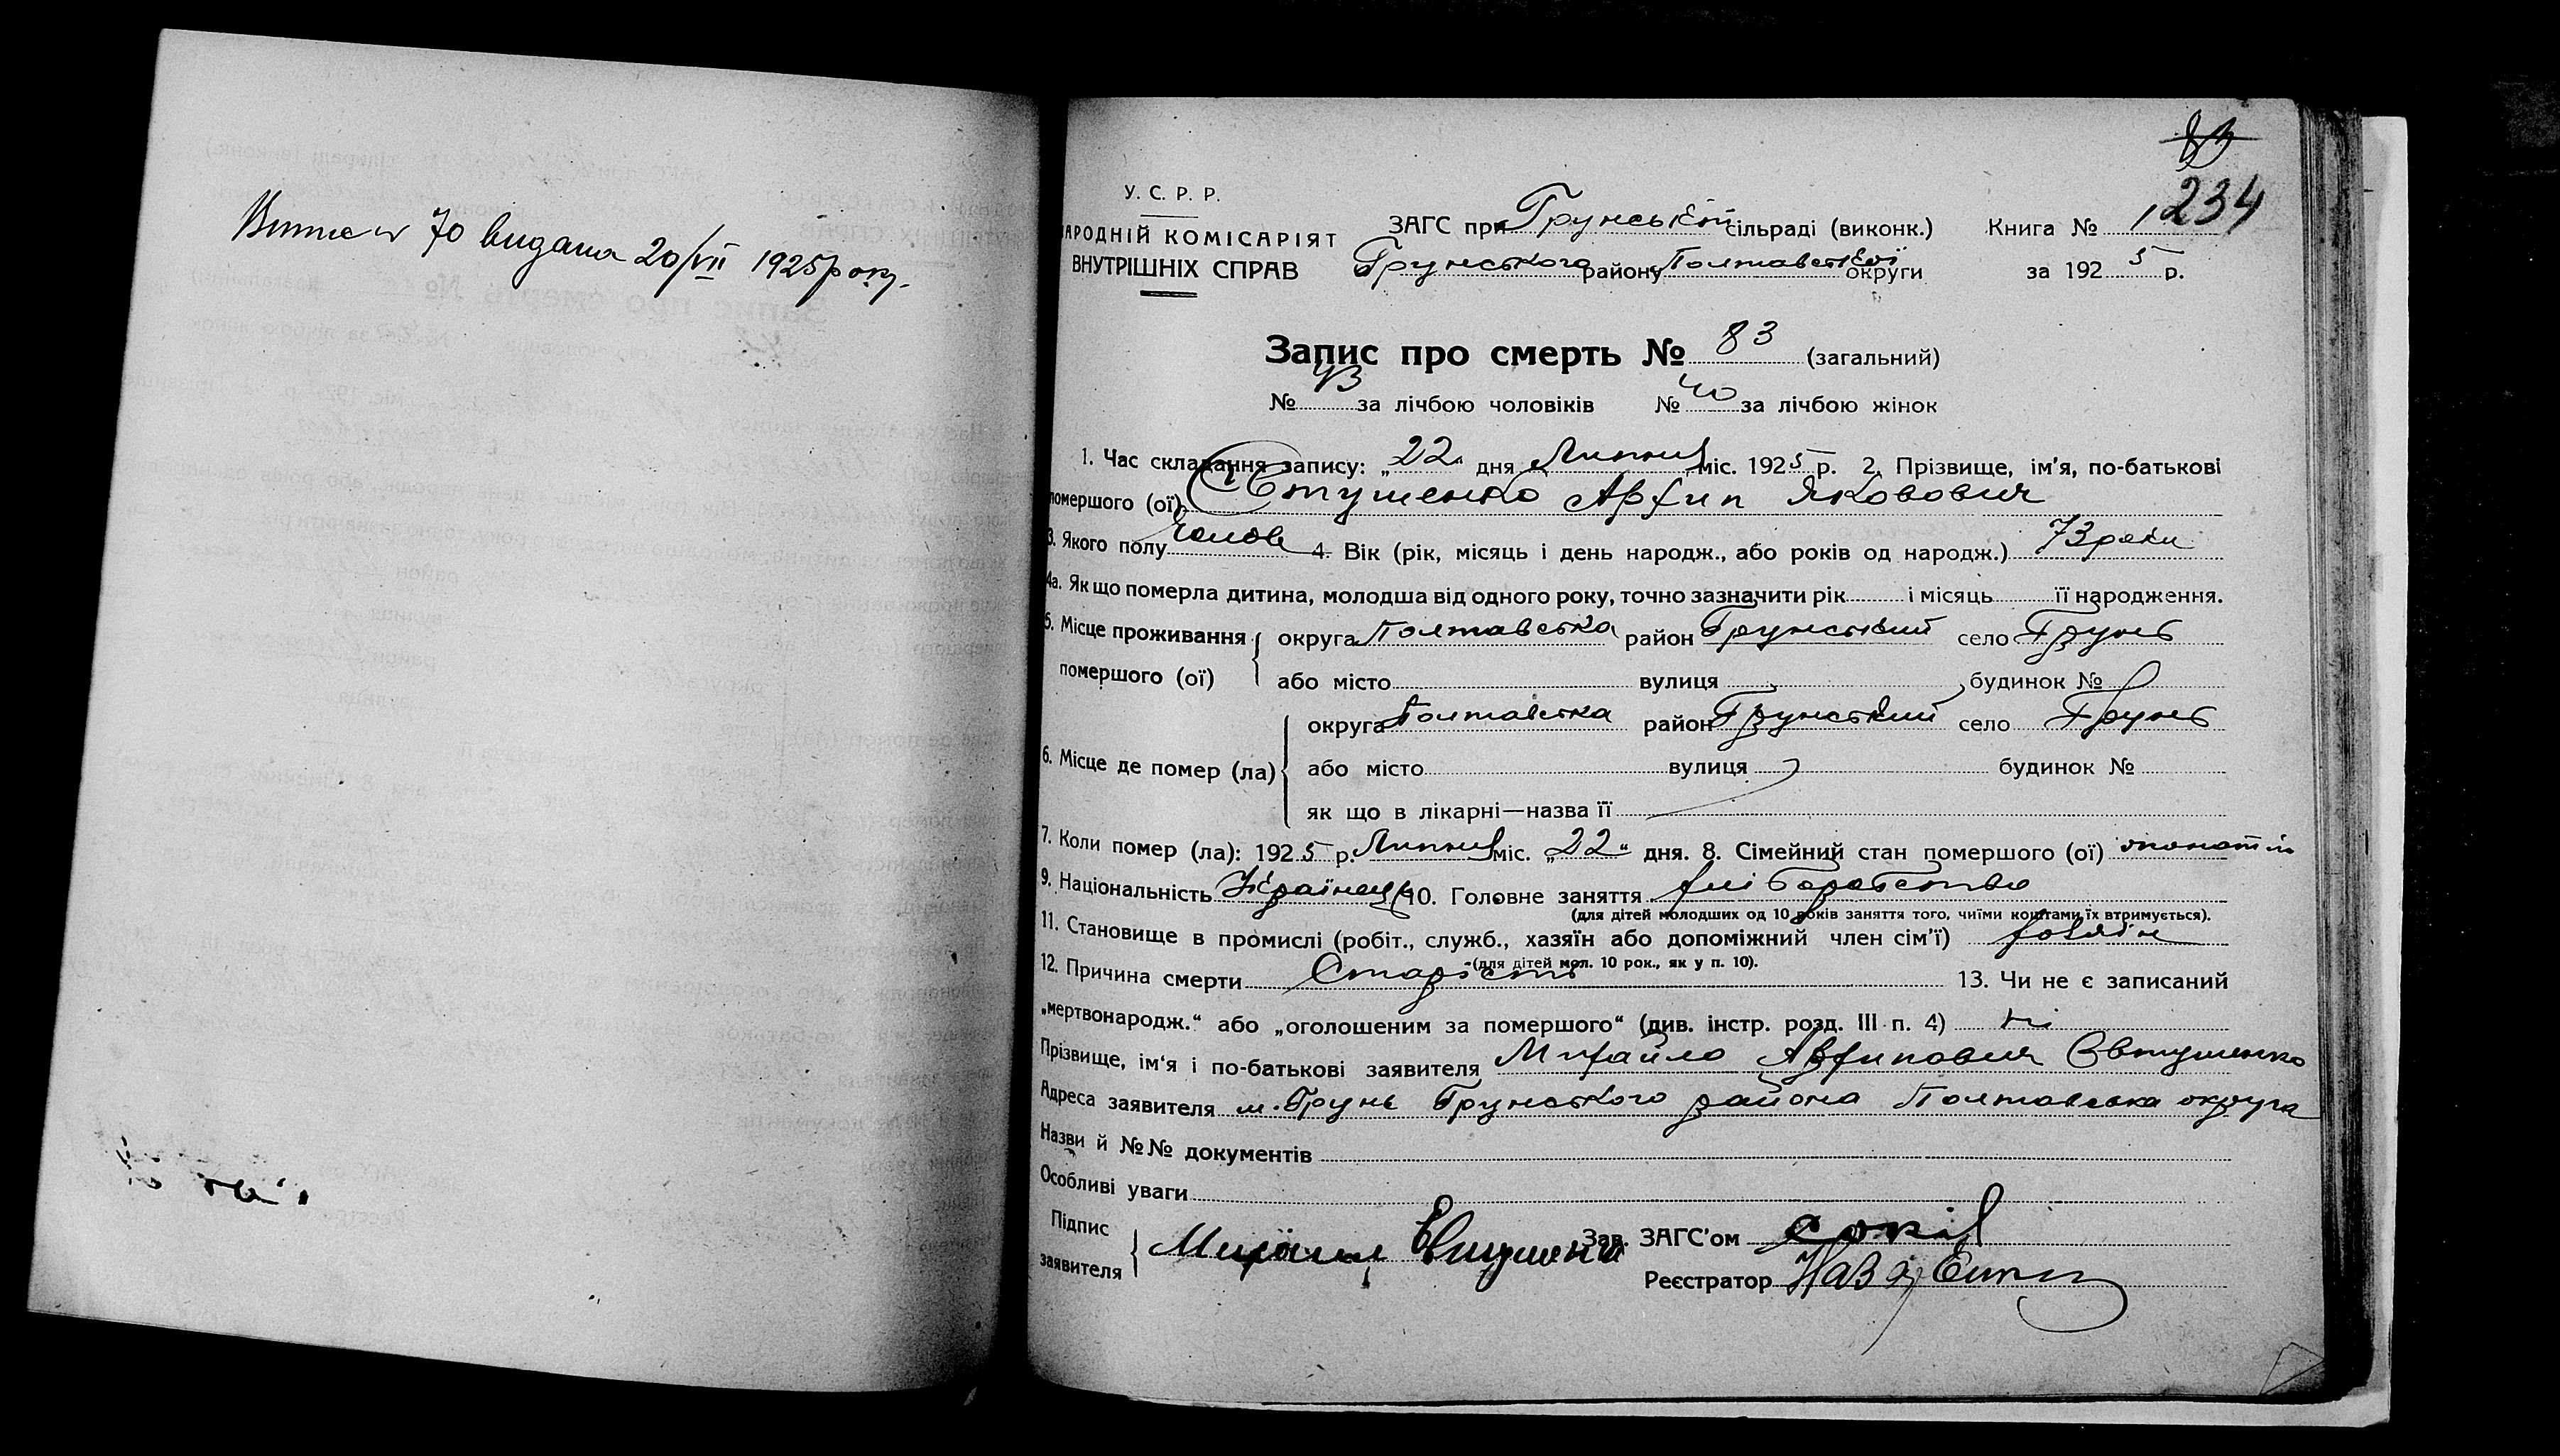 Виписку 70 видана 20/VII 1925 року.
83
234
У. С. Р. Р.
НАРОДНІЙ КОМІСАРІЯТ
ВНУТРІШНІХ СПРАВ
ЗАГС при Грунській сільраді (виконк.)
Грунського району Полтавської округи
Книга № 1
за 1925 р.
Запис про смерть № 83 (загальний)
№ 43 за лічбою чоловіків № 40 за лічбою жінок
1. Час складання запису: „22“ дня Липня міс. 1925 р. 2. Прізвище, ім'я, по-батькові
помершого (ої) Євтушенко Архип Якович
3. Якого полу Чолов 4. Вік (рік, місяць і день народж., або років од народж.) 73 роки
4а. Як що померла дитина, молодша від одного року, точно зазначити рік і місяць її народження.
5. Місце проживання округа Полтавська район Грунський село Грунь
помершого (ої) або місто вулиця будинок №
округа Полтавська район Грунський село Грунь
6. Місце де помер (ла) або місто вулиця будинок №
як що в лікарні—назва її
7. Коли помер (ла): 1925 р. Липня міс. „22“ дня. 8. Сімейний стан помершого (ої) жонатий
9. Національність Українець 10. Головне заняття хліборобство
(для дітей молодших од 10 років заняття того, чиїми коштами їх втримується).
11. Становище в промислі (робіт., служб., хазяїн або допоміжний член сім'ї) хазяїн
(для дітей мол. 10 рок., як у п. 10).
12. Причина смерти Старість 13. Чи не є записаний
„мертвонародж.“ або „оголошеним за помершого“ (див. інстр. розд. III п. 4) ні
Прізвище, ім'я і по-батькові заявителя Михайло Архипович Євтушенко
Адреса заявителя м. Грунь Грунського района Полтавська округа
Назви й №№ документів
Особливі уваги
Підпис
заявителя Михаил Евтушенко
Зав. ЗАГС'ом
Реєстратор